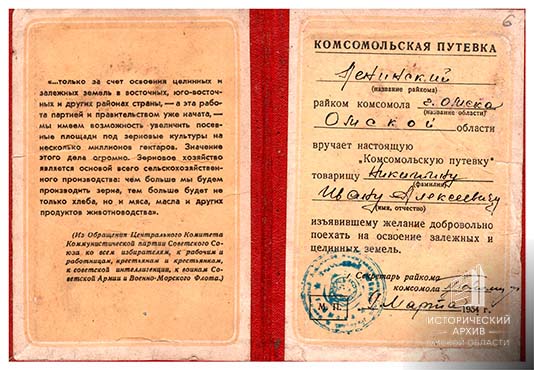 «...только за счет освоения целинных и
залежных земель в восточных, юго-восточ-
ных и других районах страны, — а эта рабо-
та партией и правительством уже начата, —
мы имеем возможность увеличить посев-
ные площади под зерновые культуры на
несколько миллионов гектаров. Значение
этого дела огромно. Зерновое хозяйство
является основой всего сельскохозяйствен-
ного производства: чем больше мы будем
производить зерна, тем больше будет не
только хлеба, но и мяса, масла и других
продуктов животноводства».
(Из Обращения Центрального Комитета
Коммунистической партии Советского Сою-
за ко всем избирателям, к рабочим и
работницам, крестьянам и крестьянкам,
к советской интеллигенции, к воинам Со-
ветской Армии и Военно-Морского Флота.)
6
КОМСОМОЛЬСКАЯ ПУТЕВКА
Ленинский
(название райкома)
райком комсомола г. Омска
(название области)
Омской области
вручает настоящую
"Комсомольскую путевку"
товарищу Никитину
(фамилия)
Ивану Алексеевичу
(имя, отчество)
изъявившему желание добровольно
поехать на освоение залежных и
целинных земель.
Секретарь райкома
комсомола
М. П.
Марта 1954 г.
ИСТОРИЧЕСКИЙ
АРХИВ
ОМСКОЙ ОБЛАСТИ